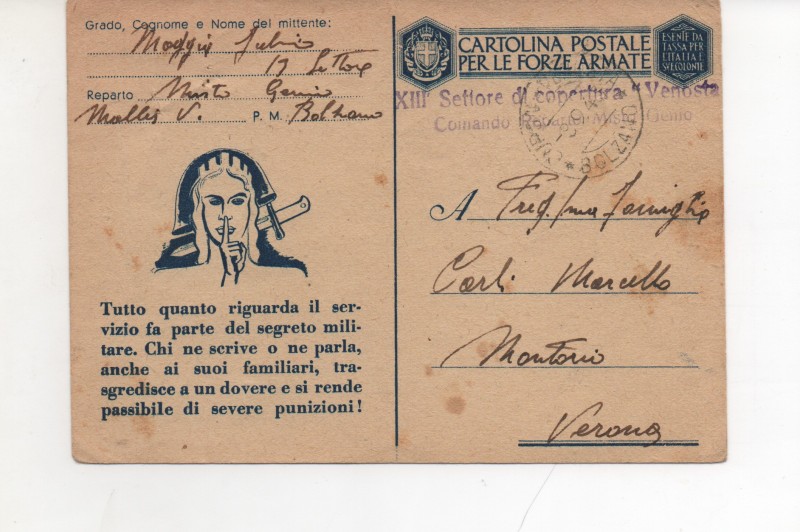 Grado, Cognome e Nome del mittente:
13 Settore
Reparto Misto Genio
Malles V. P. M. Bolzano
Tutto quanto riguarda il ser-
vizio fa parte del segreto mili-
tare. Chi ne scrive o ne parla,
anche ai suoi familiari, tra-
sgredisce a un dovere e si rende
passibile di severe punizioni!
CARTOLINA POSTALE
PER LE FORZE ARMATE
ESENTE DA
TASSA PER
L'ITALIA E
SVE COLONIE
XIII Settore di copertura "Venosta
Comando Reparto Misto Genio
BOLZANO
A Preg/ma Famiglia
Carli Marcello
Montorio
Verona